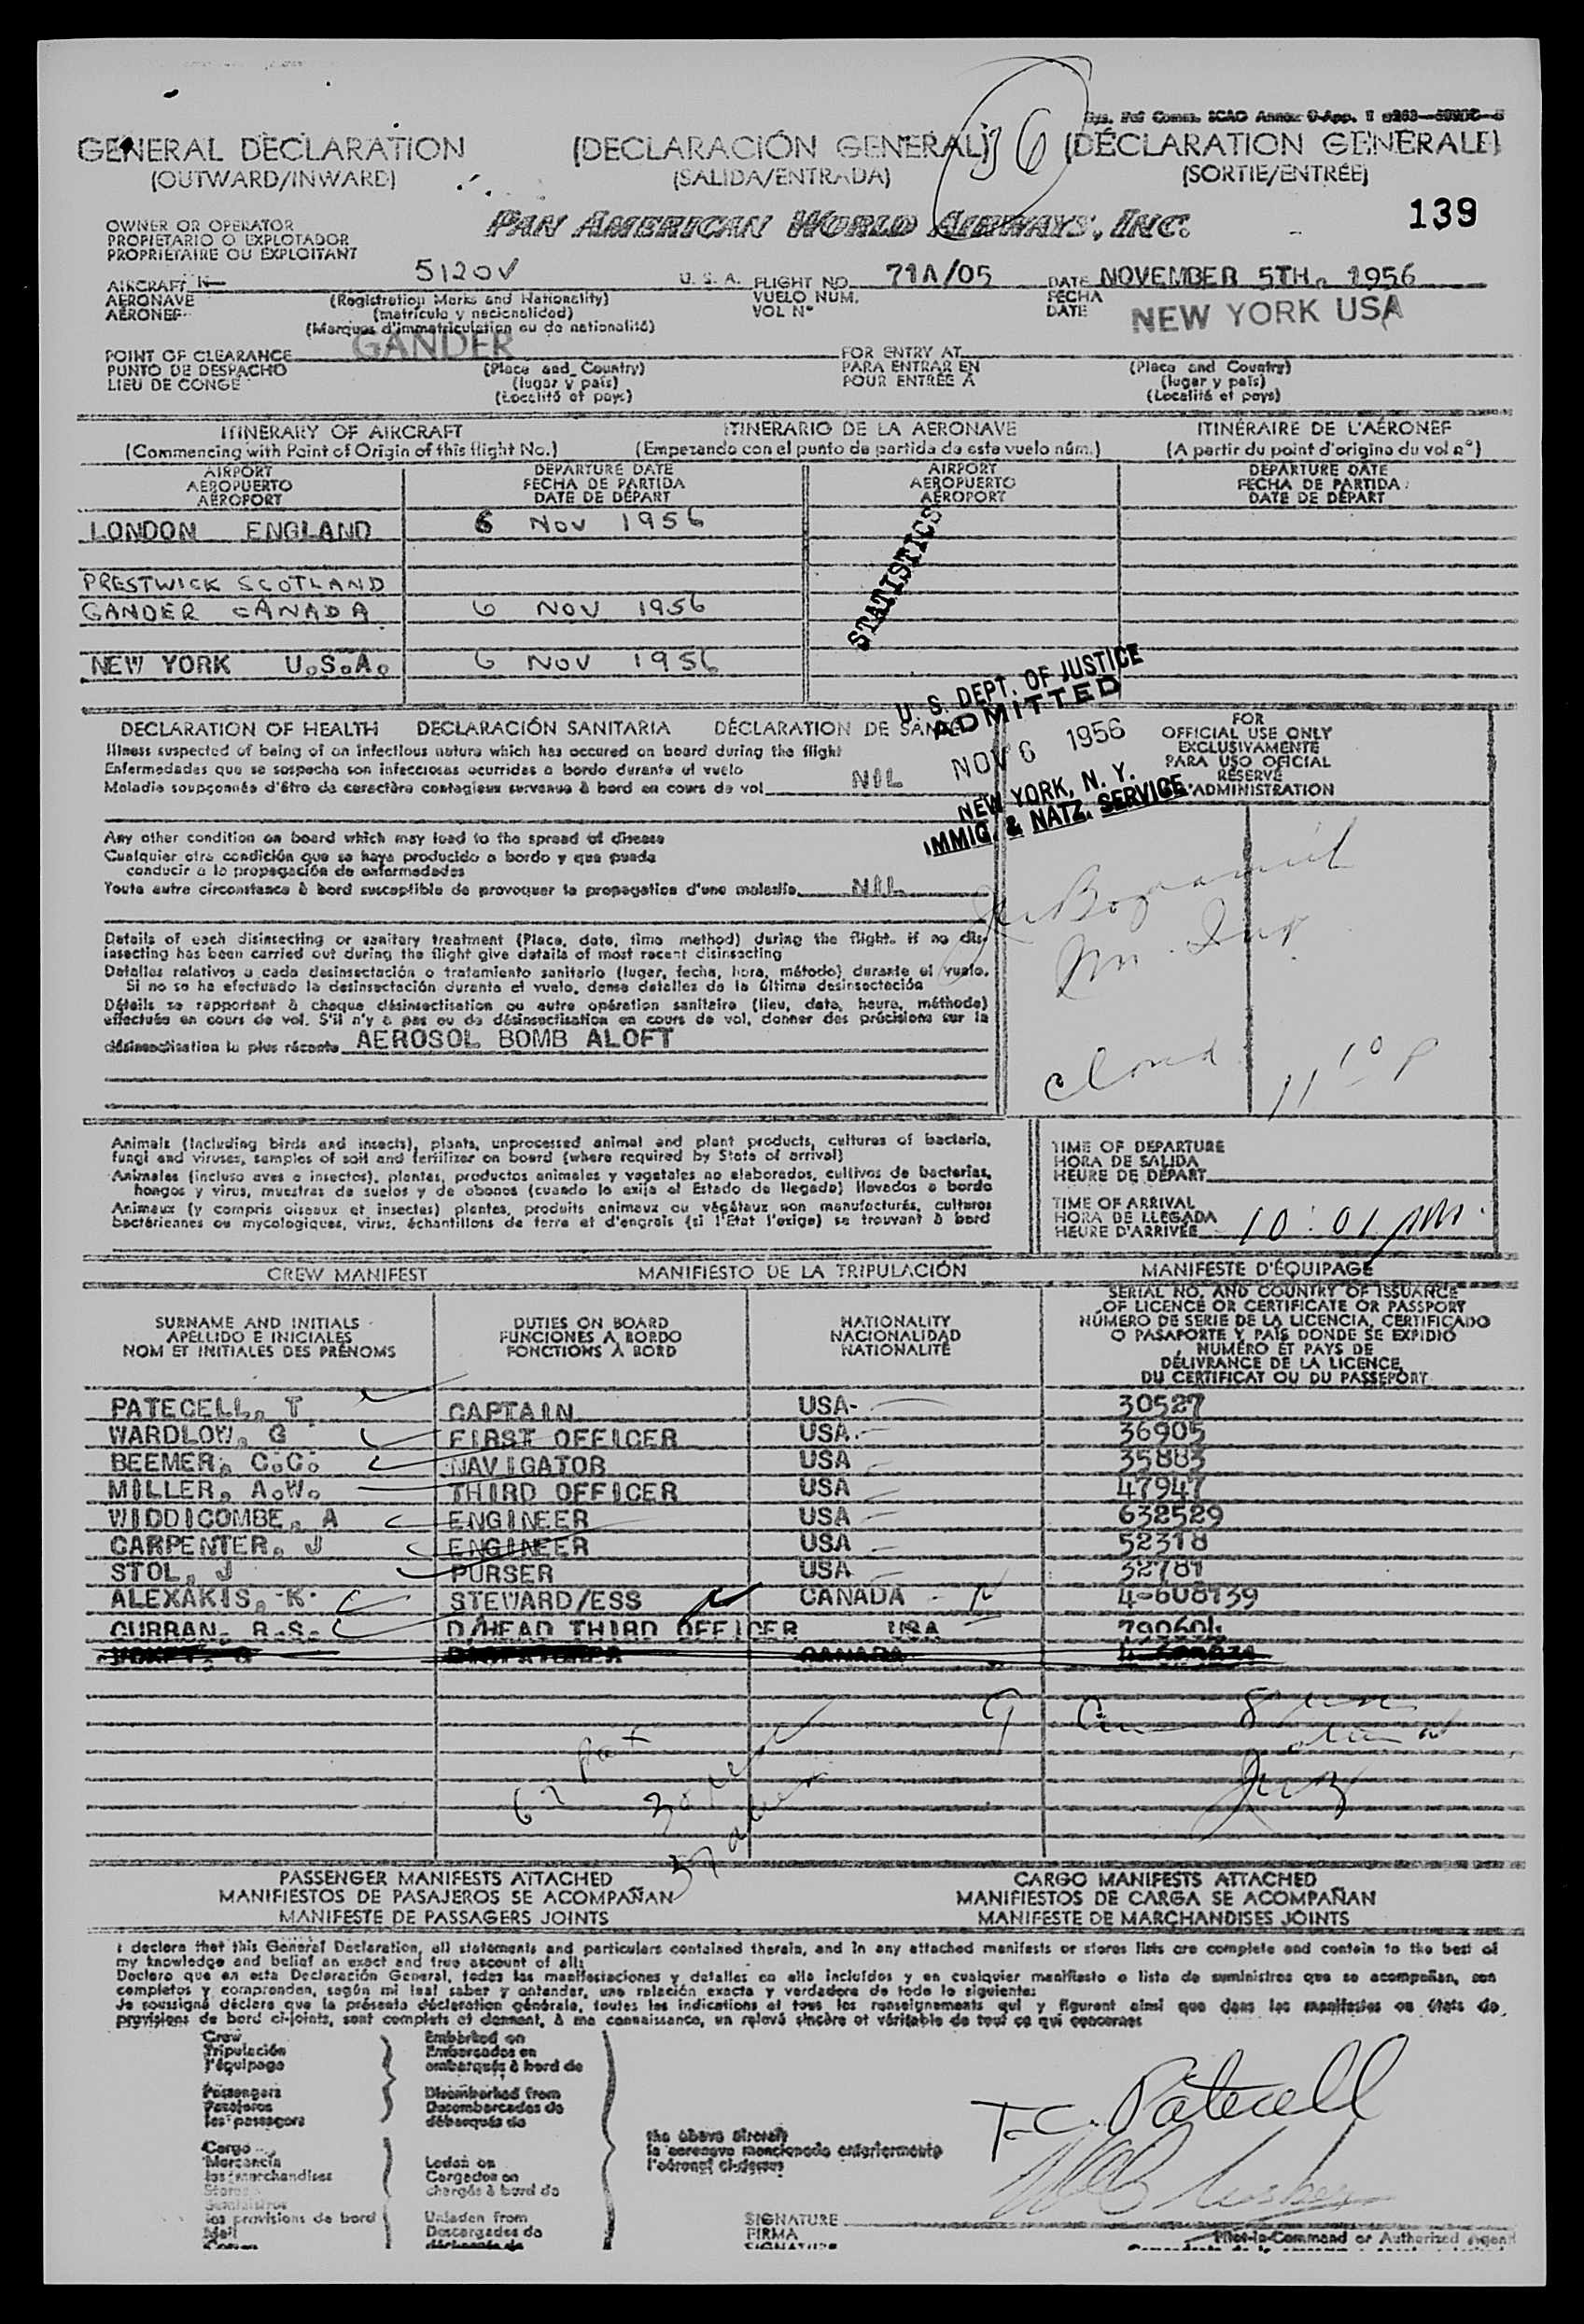 GENERAL DECLARATION (DECLARACIÓN GENERAL) 36 (DÉCLARATION GÉNÉRALE)
(OUTWARD/INWARD) (SALIDA/ENTRADA) (SORTIE/ENTRÉE)
OWNER OR OPERATOR
PROPIETARIO O EXPLOTADOR
PROPRIETAIRE OU EXPLOITANT
PAN AMERICAN WORLD AIRWAYS, INC. 139
AIRCRAFT N 5120V U. S. A. FLIGHT NO. 71A/05 DATE NOVEMBER 5TH. 1956
AERONAVE (Registration Marks and Nationality) VUELO NUM. FECHA
AÉRONEF (matrícula y nacionalidad) VOL N° DATE NEW YORK USA
(Marques d'immatriculation ou de nationalité)
GANDER
POINT OF CLEARANCE (Place and Country) FOR ENTRY AT (Place and Country)
PUNTO DE DESPACHO (lugar y país) PARA ENTRAR EN (lugar y país)
LIEU DE CONGÉ (Localité et pays) POUR ENTRÉE À (Localité et pays)
ITINERARY OF AIRCRAFT ITINERARIO DE LA AERONAVE ITINÉRAIRE DE L'AÉRONEF
(Commencing with Point of Origin of this flight No.) (Empezando con el punto de partida de este vuelo núm.) (A partir du point d'origine du vol n°)
AIRPORT DEPARTURE DATE AIRPORT DEPARTURE DATE
AEROPUERTO FECHA DE PARTIDA AEROPUERTO FECHA DE PARTIDA
AÉROPORT DATE DE DÉPART AÉROPORT DATE DE DÉPART
LONDON ENGLAND 6 NOV 1956
PRESTWICK SCOTLAND
GANDER CANADA 6 NOV 1956
NEW YORK U.S.A. 6 NOV 1956
STATISTICS
U. S. DEPT. OF JUSTICE
ADMITTED
NOV 6 1956
NEW YORK, N. Y.
IMMIG. & NATZ. SERVICE
DECLARATION OF HEALTH DECLARACIÓN SANITARIA DÉCLARATION DE SANTÉ
Illness suspected of being of an infectious nature which has occured on board during the flight
Enfermedades que se sospecha son infecciosas ocurridas a bordo durante el vuelo
Maladie soupçonnée d'être de caractère contagieux survenue à bord en cours de vol NIL
FOR
OFFICIAL USE ONLY
EXCLUSIVAMENTE
PARA USO OFICIAL
RÉSERVÉ
L'ADMINISTRATION
Any other condition on board which may lead to the spread of disease
Cualquier otra condición que se haya producido a bordo y que pueda
conducir a la propagación de enfermedades
Toute autre circonstance à bord susceptible de provoquer la propagation d'une maladie NIL
Details of each disinsecting or sanitary treatment (Place, date, time method) during the flight. If no dis-
insecting has been carried out during the flight give details of most recent disinsecting
Detalles relativos a cada desinsectación o tratamiento sanitario (lugar, fecha, hora, método) durante el vuelo.
Si no se ha efectuado la desinsectación durante el vuelo, dense detalles de la última desinsectación
Détails se rapportant à chaque désinsectisation ou autre opération sanitaire (lieu, date, heure, méthode)
effectuée en cours de vol. S'il n'y a pas eu de désinsectisation en cours de vol, donner des précisions sur la
désinsectisation la plus récente AEROSOL BOMB ALOFT
Animals (including birds and insects), plants, unprocessed animal and plant products, cultures of bacteria,
fungi and viruses, samples of soil and fertilizer on board (where required by State of arrival)
Animales (incluso aves e insectos), plantas, productos animales y vegetales no elaborados, cultivos de bacterias,
hongos y virus, muestras de suelos y de abonos (cuando lo exija el Estado de llegada) llevados a bordo
Animaux (y compris oiseaux et insectes) plantes, produits animaux ou végétaux non manufacturés, cultures
bactériennes ou mycologiques, virus, échantillons de terre et d'engrais (si l'Etat l'exige) se trouvant à bord
TIME OF DEPARTURE
HORA DE SALIDA
HEURE DE DÉPART
TIME OF ARRIVAL
HORA DE LLEGADA
HEURE D'ARRIVÉE 10:01 PM
CREW MANIFEST MANIFIESTO DE LA TRIPULACIÓN MANIFESTE D'ÉQUIPAGE
SURNAME AND INITIALS DUTIES ON BOARD NATIONALITY
APELLIDO E INICIALES FUNCIONES A BORDO NACIONALIDAD
NOM ET INITIALES DES PRÉNOMS FONCTIONS À BORD NATIONALITÉ
SERIAL NO. AND COUNTRY OF ISSUANCE
OF LICENCE OR CERTIFICATE OR PASSPORT
NÚMERO DE SERIE DE LA LICENCIA, CERTIFICADO
O PASAPORTE Y PAÍS DONDE SE EXPIDIÓ
NUMÉRO ET PAYS DE
DÉLIVRANCE DE LA LICENCE,
DU CERTIFICAT OU DU PASSEPORT
PATECELL, T CAPTAIN USA 30527
WARDLOW, G FIRST OFFICER USA 36905
BEEMER, C.C. NAVIGATOR USA 35883
MILLER, A.W. THIRD OFFICER USA 47947
WIDDICOMBE, A ENGINEER USA 632529
CARPENTER, J ENGINEER USA 52318
STOL, J PURSER USA 32781
ALEXAKIS, K STEWARD/ESS CANADA 4-608739
CURRAN, R.S. D/HEAD THIRD OFFICER USA 790604
PASSENGER MANIFESTS ATTACHED CARGO MANIFESTS ATTACHED
MANIFIESTOS DE PASAJEROS SE ACOMPAÑAN MANIFIESTOS DE CARGA SE ACOMPAÑAN
MANIFESTE DE PASSAGERS JOINTS MANIFESTE DE MARCHANDISES JOINTS
I declare that this General Declaration, all statements and particulars contained therein, and in any attached manifests or stores lists are complete and contain to the best of
my knowledge and belief an exact and true account of all:
Declaro que en esta Declaración General, todas las manifestaciones y detalles en ella incluídos y en cualquier manifiesto o lista de suministros que se acompañan, son
completos y comprenden, según mi leal saber y entender, una relación exacta y verdadera de todo lo siguiente:
Je soussigné déclare que la présente déclaration générale, toutes les indications et tous les renseignements qui y figurent ainsi que dans les manifestes ou états de
provisions de bord ci-joints, sont complets et donnent, à ma connaissance, un relevé sincère et véritable de tout ce qui concernes
Crew Embarked on
Tripulación Embarcados en
l'équipage embarqués à bord de
Passengers Disembarked from
Pasajeros Desembarcados de
les passagers débarqués de
the above aircraft
la aeronave mencionada anteriormente
l'aéronef ci-dessus
Cargo
Mercancía Laden on
les marchandises Cargados en
Stores chargés à bord de
Suministros
les provisions de bord Unladen from
Mail Descargados de
T.C. Patecell
SIGNATURE
FIRMA Pilot-in-Command or Authorized Agent
SIGNATURE